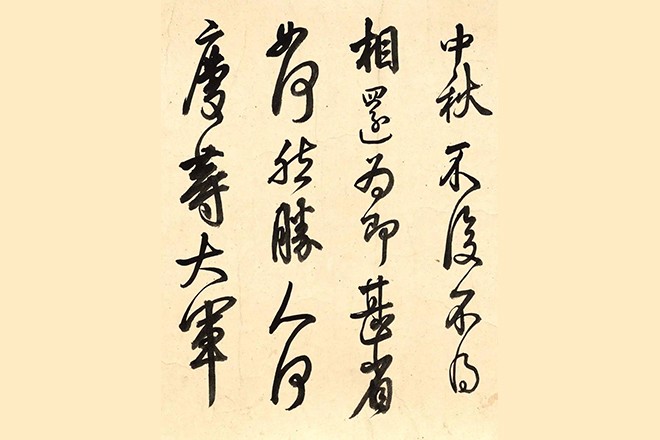 中秋不復不得
相還為即甚省
如何然勝人何
慶等大軍